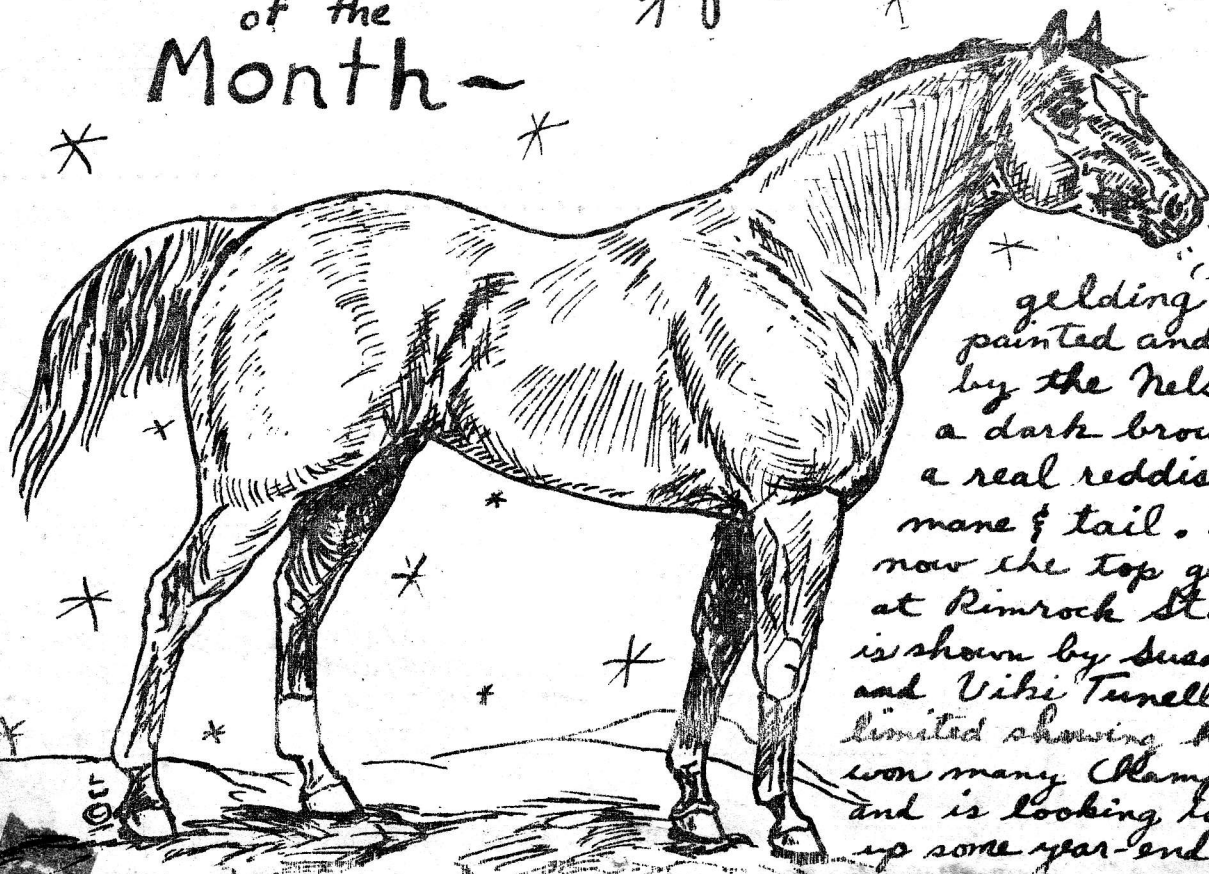 of the
Month~
gelding
painted and
by the Nels
a dark brow
a real reddis
mane & tail.
now the top g
at Rimrock St
is shown by Susa
and Viki Tunell
limited showing h
won many Champ
and is looking to
up some year-end
©ET